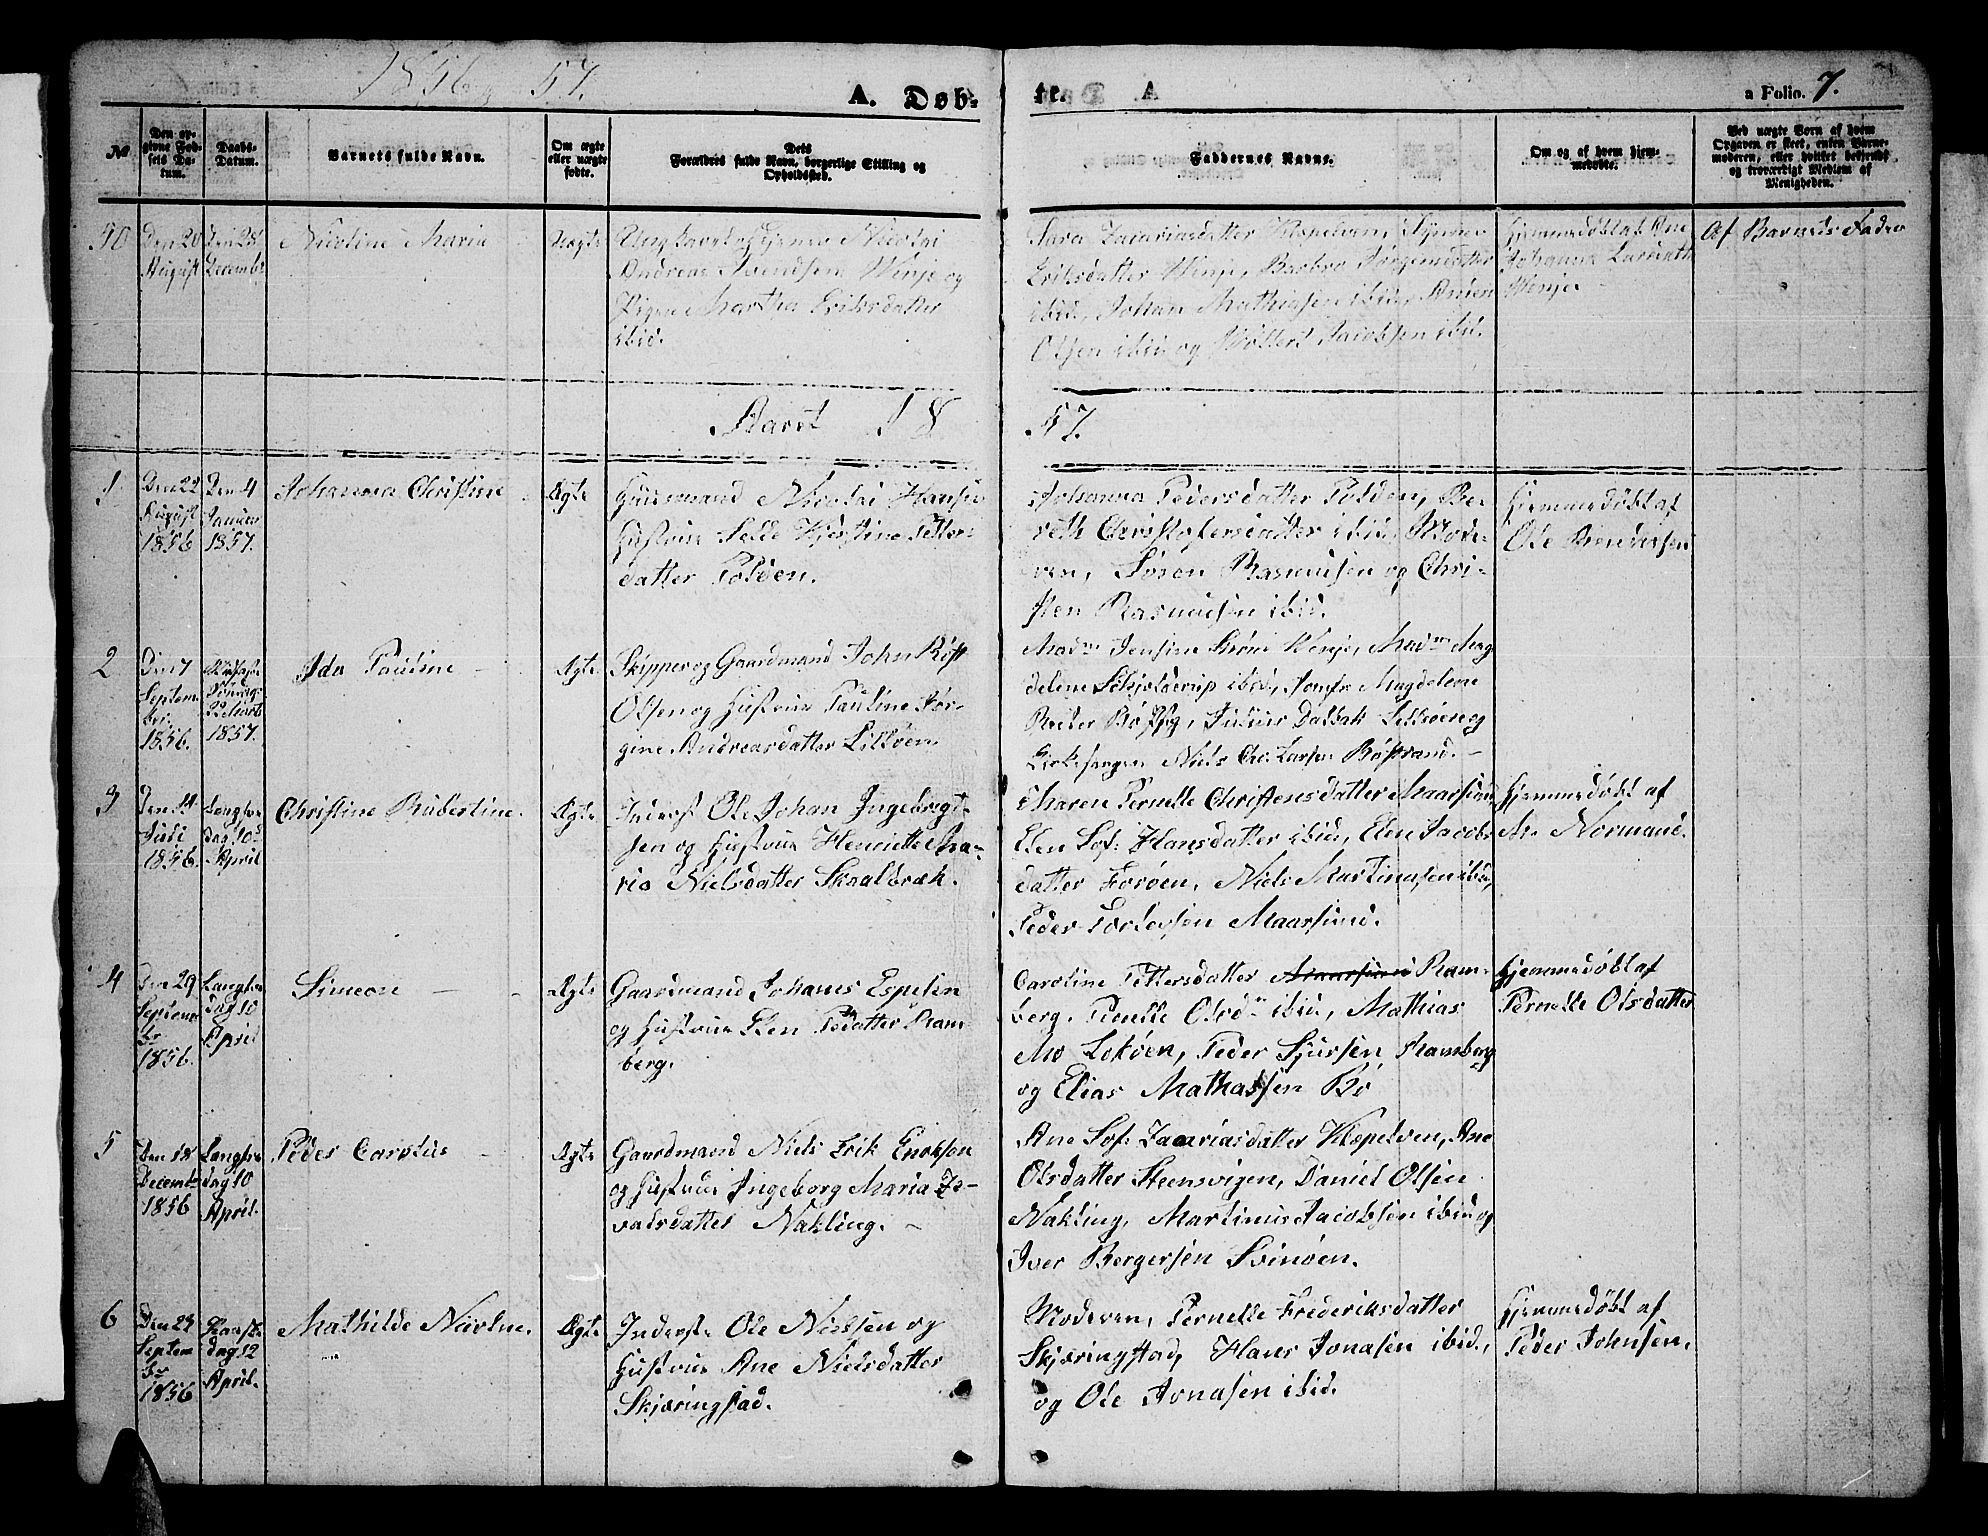 1856 57.
A. Døb-
te.
a Folio. 7.
№
Den opgivne Fødsels Datum.
Daabs-Datum.
Barnets fulde Navn.
Om ægte eller uægte fødte.
Dets Forældres fulde Navn, borgerlige Stilling og Opholdsted.
Faddernes Navne.
Om og af hvem hjemmedøbte.
Ved uægte Børn af hvem Opgaven er skeet, enten Børnemoderen, eller hvilket bekjendt og troværdigt Medlem af Menigheden.
Den 20 August
Den 28 Decembr
Nicoline Maria
Uægte
Ungkarl Nicolai
Andreas Svendsen Winje og
Pigen Martha Eriksdatter
ibid.
Sara Zacariasdatter Klepelven,
Eriksdatter Winje, Barbro Jørgensdatter
ibid, Johan Mathiasen ibid,
Olsen ibid og Jacobsen ibid.
Hjemmedøbt af Ane
Johanna
Winje
Af Barnets Fader
Aaret 18
57.
1
Den 22
August
1856
Den 4
Januar
1857.
Johanna Christine
Ægte
Huusmand Nicolai Hansen
Hustrue Kjerstine Petter-
datter Polden.
Johanna Pedersdatter Polden, Be-
reth Christophersdatter ibid, Mode-
ren, Søren Rasmusen og Chri-
sten Rasmusen ibid.
Hjemmedøbt af
Ole Brendersen
2
Den 7
Septem-
ber
1856.
22 Marts
1857.
Ida Pauline
Ægte
Skipper og Gaardmand John Røst
Olsen og Hustrue Pauline Jør-
gine Andreasdatter Lilløen
Madm Jensine Winje, Madm Mag
delene Schjelderup ibid, Jomfr Magdelene
Julius Dalbak Lilløen og
Kirkesanger Niels Chr. Larsen Bøstrand.
3
Den 14
Juli
1856.
Langfre
dag 10
April
Christine Rubertine.
Ægte
Inderst Ole Johan Ingebrigt-
sen og Hustrue Henriette Ma-
ria Nielsdatter Skaalbræk.
Maren Pernelle Christensdatter Maarsund
Elen Sof: Hansdatter ibid, Elen Jacobs
datter Forøen, Niels Martinusen ibid,
Peder Torlevsen Maarsund.
Hjemmedøbt af
Normand.
4
Den 29
Septem
br
1856.
Langfre
dag 10
April
Simeon
Ægte
Gaardmand Johanes Espesen
og Hustrue Elen Pedatter Ram
berg.
Caroline Pettersdatter Maarsund Ram-
berg. Pernelle Olsdr ibid, Mathias
Mo Lokøen, Peder Sjursen Ramberg
og Elias Mathassen Bø
Hjemmedøbt af
Pernelle Olsdatter
5
Den 18
Decembr
1856
Langfre
dag 10
April.
Peder Carolus
Ægte
Gaardmand Niels Erik Enoksen
og Hustrue Ingeborg Maria Ze-
valsdatter Nakling.
Ane Sof: Zaariasdatter Klepelven, Ane
Olsdatter Steensvigen, Daniel Olsen
Nakling, Martinus Jacobsen ibid og
Iver Bergersen Svinøen.
6
Den 29
Septem
br
1856
Paaske
dag 12
April.
Mathilde Nicoline.
Ægte
Inderst Ole Nielssen og
Hustrue Ane Nielsdatter
Skjæringstad.
Moderen, Pernelle Frederiksdatter
Skjæringstad, Hans Jonasen ibid.,
og Ole Jonasen ibid.
Hjemmedøbt af
Peder Johnsen.